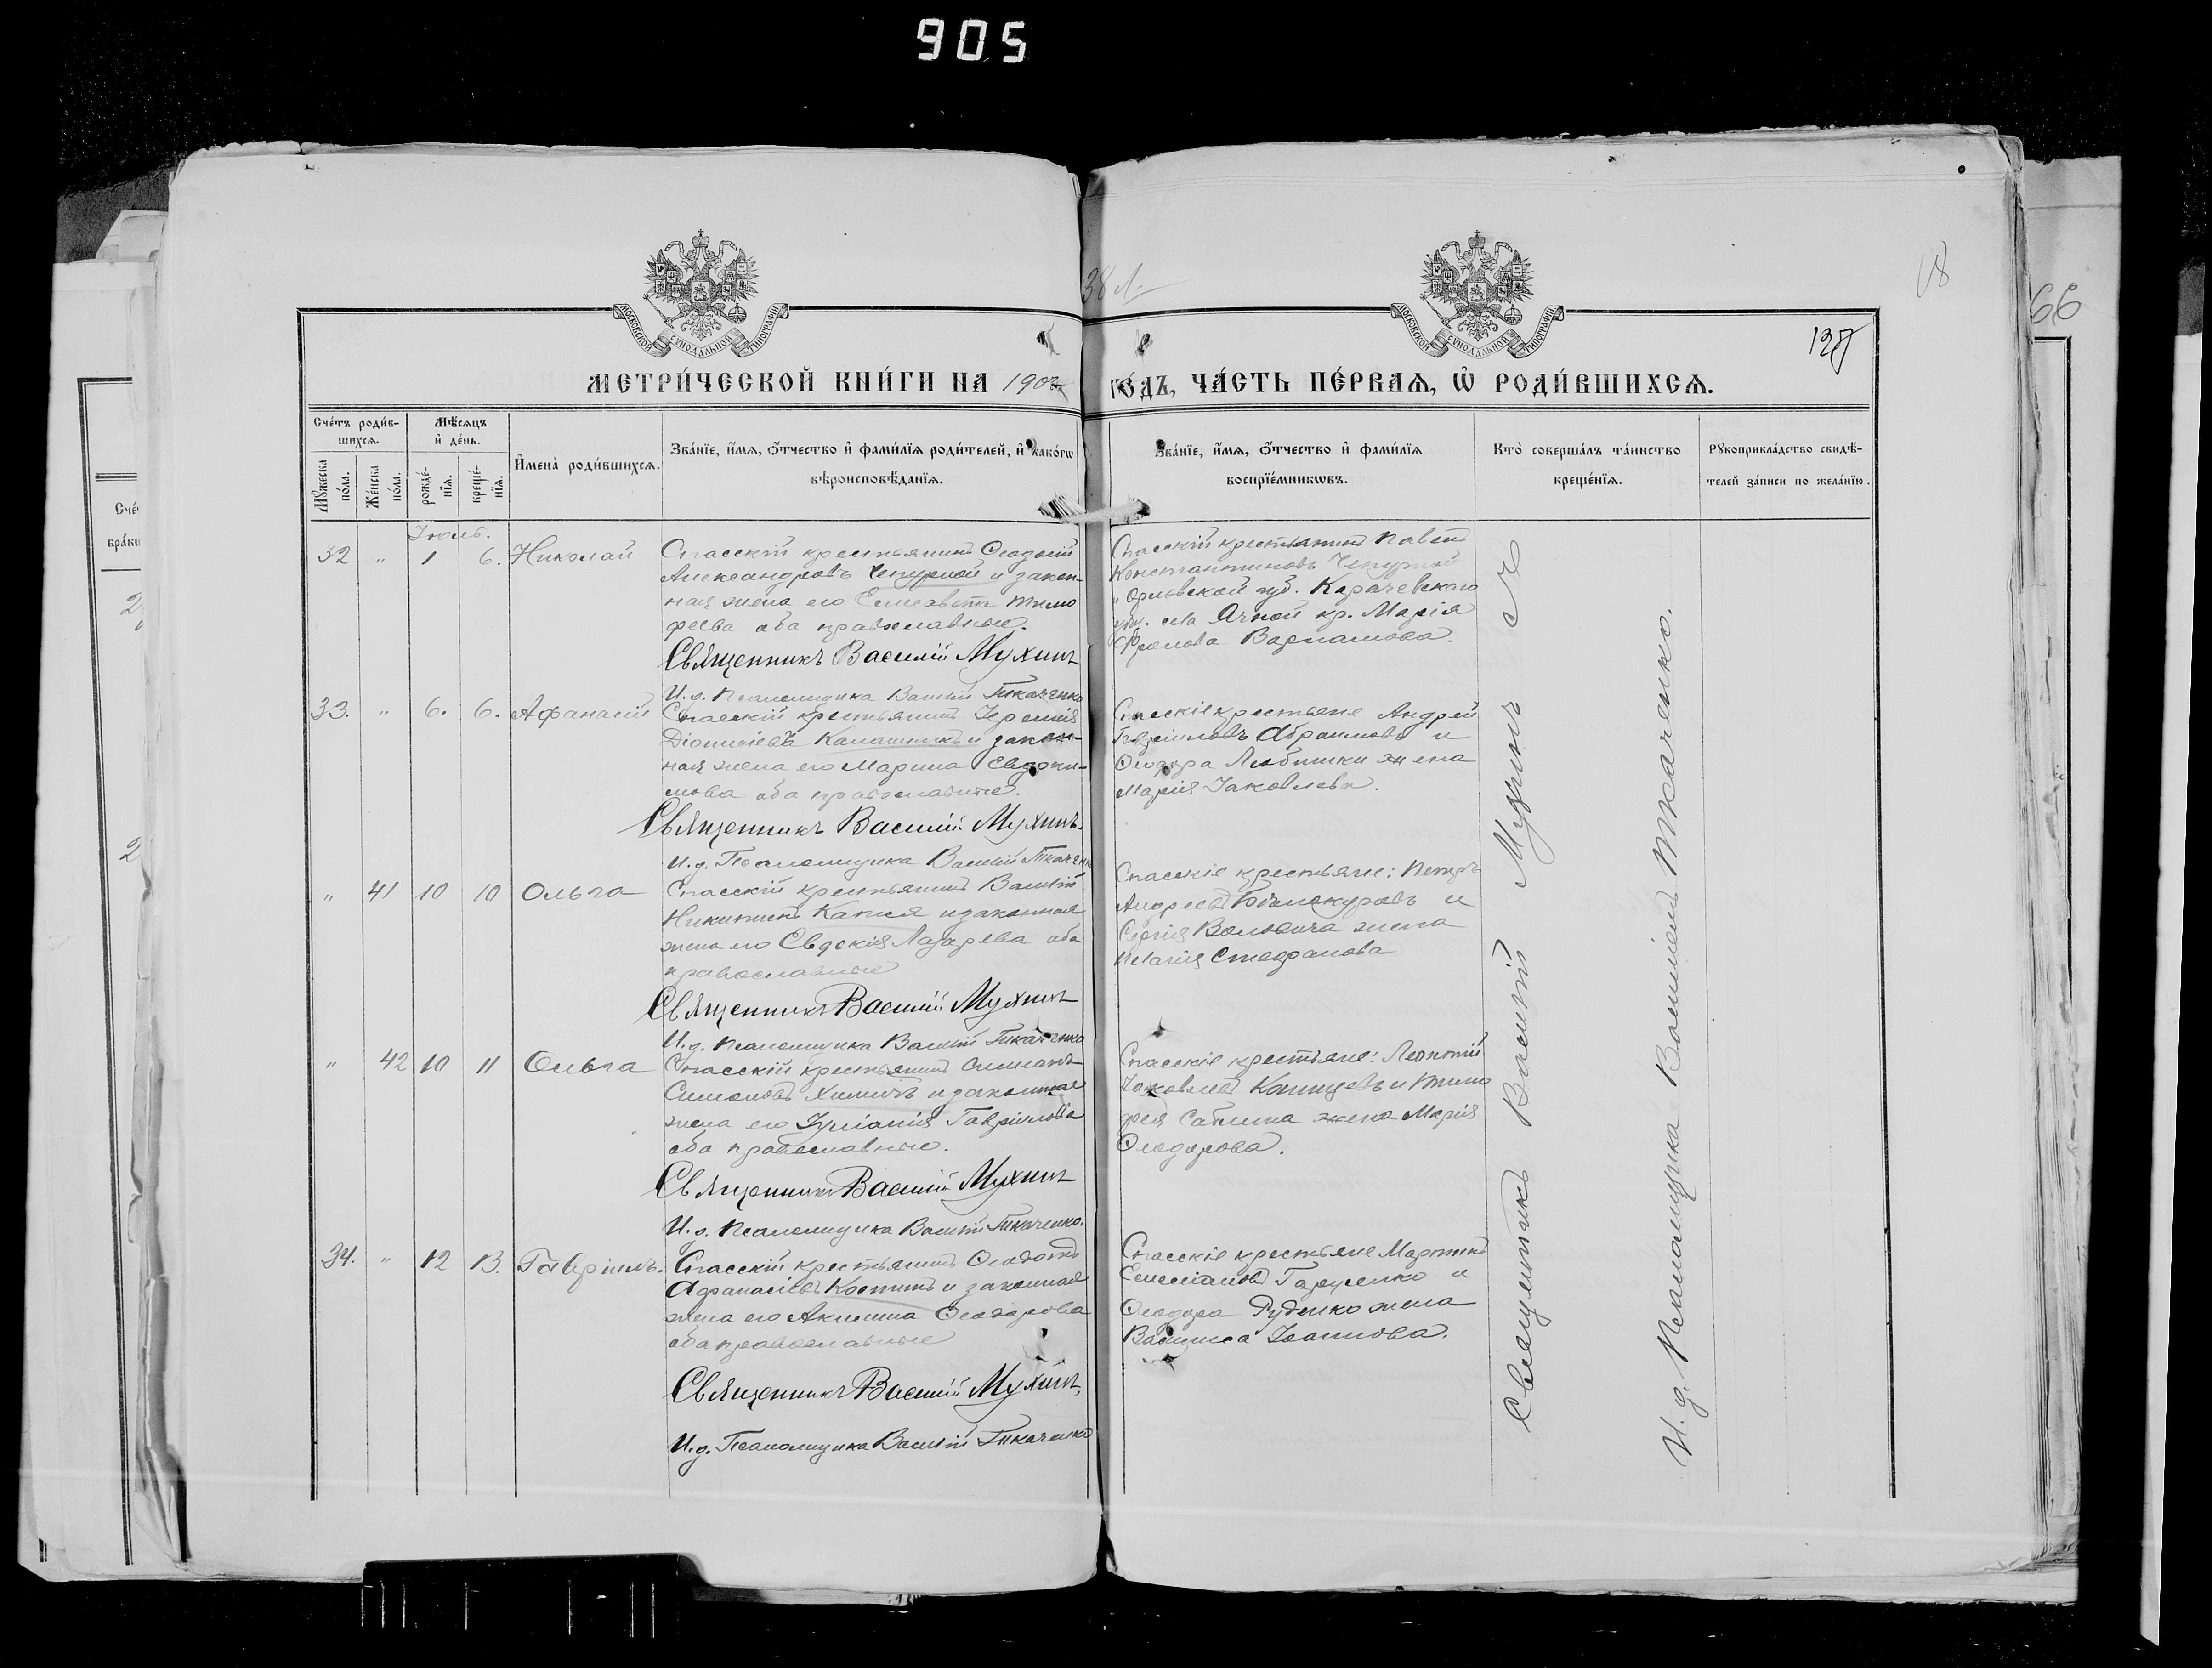 905
38 л.
18
66
128
МОСКОВСКОЙ СѴНОДАЛЬНОЙ ТИПОГРАФІИ
МОСКОВСКОЙ СѴНОДАЛЬНОЙ ТИПОГРАФІИ
МЕТРИ́ЧЕСКОЙ КНИ́ГИ НА 1902 ГО́ДЪ, ЧА́СТЬ ПЕ́РВАѦ, Ѡ҆ РОДИ́ВШИХСѦ.
Сче́тъ роди́в-
шихсѧ.
Мѣ́сѧцъ
и҆ де́нь.
Мꙋ́жеска по́ла.
Же́нска по́ла.
рожде́-
нїѧ.
креще́-
нїѧ.
И҆мена̀ роди́вшихсѧ.
Зва́нїе, и҆́мѧ, ѻ҆́тчество и҆ фами́лїѧ роди́телей, и҆ како́гѡ
вѣроисповѣ́данїѧ.
Зва́нїе, и҆́мѧ, ѻ҆́тчество и҆ фами́лїѧ
воспрїе́мникѡвъ.
Кто̀ соверша́лъ та́инство
креще́нїѧ.
Рꙋкоприкла́дство свидѣ́-
телей за́писи по жела́нїю.
Іюль.
32 " 1 6. Николай
Спасскій крестьянинъ Ѳеодосій
Александровъ Чепурной и закон-
ная жена его Елисавета Тимо
феева оба православные.
Священникъ Василій Мухинъ
И.д. Псаломщика Василій Ткаченко
Спасскій крестьянинъ Павелъ
Константиновъ Чепурной
и Орловской губ. Карачевскаго
уѣз. села Ячной кр. Марія
Фролова Варламова.
33. " 6. 6. Афанасій
Спасскій крестьянинъ Іеремія
Діонисіевъ Калашникъ и закон-
ная жена его Марина Евдоки-
мова оба православные.
Священникъ Василій Мухинъ.
И.д. Псаломщика Василій Ткаченко
Спасскіе крестьяне Андрей
Гавріиловъ Абраимовъ и
Ѳеодора Любишки жена
Марія Іаковлева.
" 41 10 10 Ольга
Спасскій крестьянинъ Василій
Никитинъ Капся и законная
жена его Евдокія Лазарева оба
православные
Священникъ Василій Мухинъ
И.д. Псаломщика Василій Ткаченко
Спасскіе крестьяне: Петръ
Андреевъ Бѣлокуровъ и
Сергія Воловича жена
Пелагія Стефанова
" 42 10 11 Ольга
Спасскій крестьянинъ Симеонъ
Симоновъ Химичъ и законная
жена его Іуліанія Гавріилова
оба православные.
Священникъ Василій Мухинъ
И.д. Псаломщика Василій Ткаченко.
Спасскіе крестьяне: Леонтій
Іаковлевъ Кашицевъ и Тимо
фея Саблина жена Марія
Ѳеодорова.
34. " 12 13. Гавріилъ.
Спасскій крестьянинъ Ѳеодотъ
Афанасіевъ Костинъ и законная
жена его Акилина Ѳеодорова
оба православные
Священникъ Василій Мухинъ,
И.д. Псаломщика Василій Ткаченко
Спасскіе крестьяне Мартинъ
Емеліановъ Гаруменко и
Ѳеодора Руденко жена
Василиса Іоаннова.
Священникъ Василій Мухинъ съ
И.д. Псаломщика Василіемъ Ткаченко.